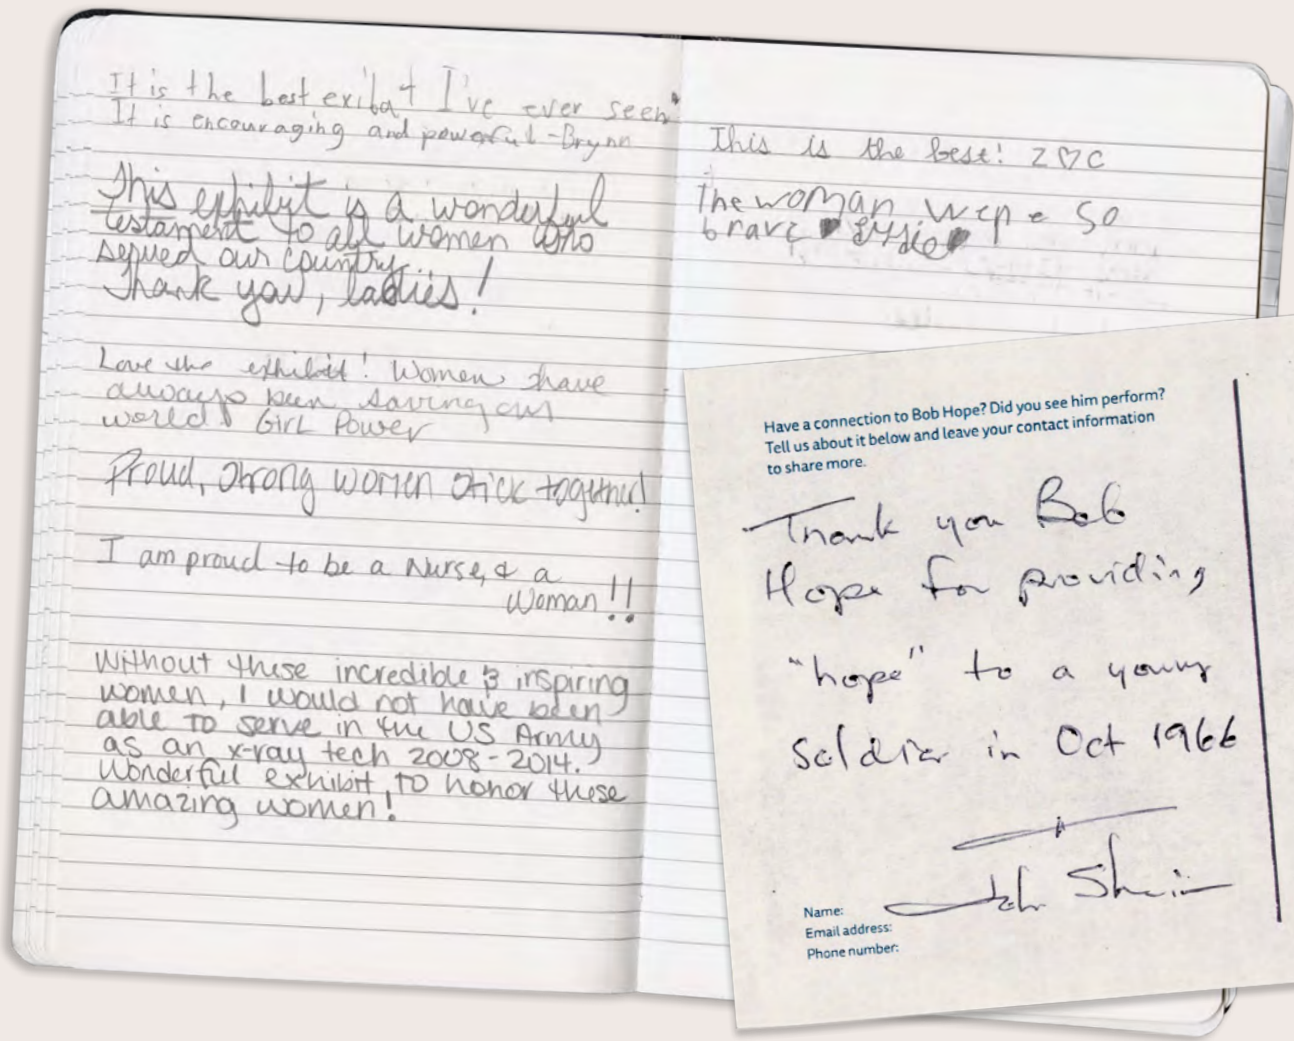 It is the best exibat I've ever seen
It is encouraging and powerful -Brynn
This exhibit is a wonderful
testament to all women who
served our country.
Thank you, ladies!
Love the exhibit! Women have
always been saving our
world Girl Power
Proud, strong women stick together!
I am proud to be a Nurse, & a
Woman!!
Without these incredible & inspiring
women, I would not have been
able to serve in the US Army
as an x-ray tech 2008-2014.
Wonderful exhibit, to honor these
amazing women!
This is the best! Z♡C
The woman wepe so
brave ♥ ♥
Have a connection to Bob Hope? Did you see him perform?
Tell us about it below and leave your contact information
to share more.
Thank you Bob
Hope for providing
"hope" to a young
soldier in Oct 1966
Name: John
Email address:
Phone number: